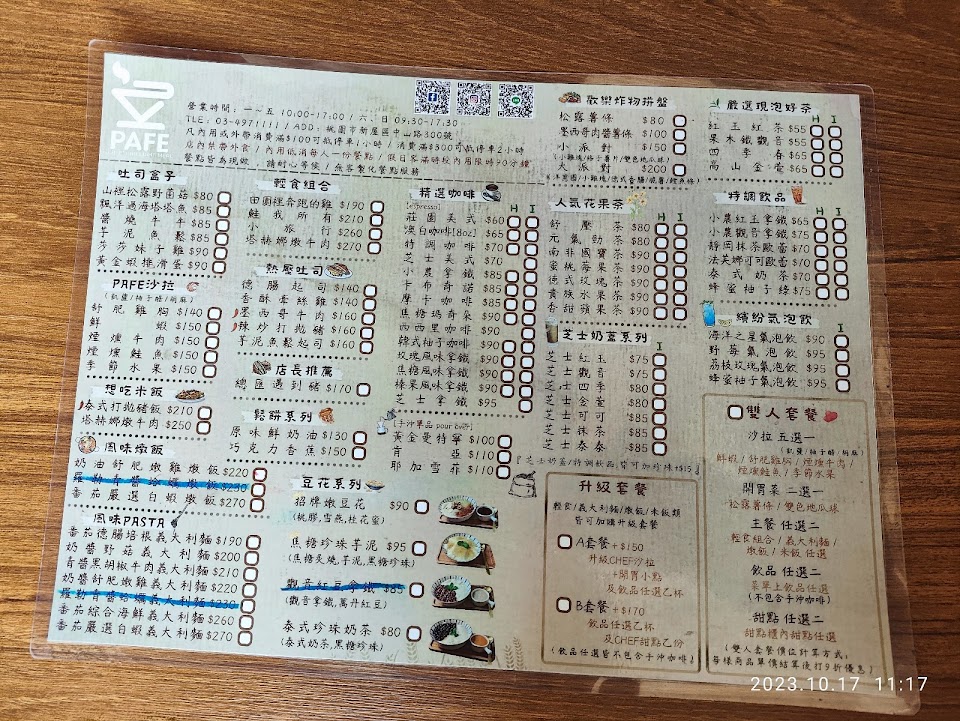 PAFE
營業時間：一~五 10:00-17:00 / 六、日 09:30-17:30
TLE：03-4971111 / ADD：桃園市新屋區中山路300號
凡內用或外帶消費滿$100可抵停車1小時 / 消費滿$300可抵停車2小時
店內禁帶外食 / 內用低消每人一份餐點 / 假日客滿時校內用限時90分鐘
餐點皆為現做，請耐心等候，無客製化餐點服務
吐司盒子
山裡松露野菌菇 $80
飄洋過海塔塔魚 $85
醬燒牛牛 $85
芋泥魚鬆 $85
莎莎妹子雞 $90
黃金蝦排滑蛋 $90
PAFE沙拉
(乳鹽/柚子醋/胡麻)
舒肥雞胸 $140
鮮蝦 $150
煙燻牛肉 $150
煙燻鮭魚 $150
季節水果 $150
想吃米飯
泰式打拋豬飯 $210
塔赫娜燉牛肉 $250
風味燉飯
奶油舒肥嫩雞燉飯 $220
番茄嚴選白蝦燉飯 $270
風味PASTA
番茄德腸培根義大利麵 $190
奶醬野菇義大利麵 $200
青醬黑胡椒牛肉義大利麵 $210
奶醬舒肥嫩雞義大利麵 $220
番茄綜合海鮮義大利麵 $260
番茄嚴選白蝦義大利麵 $270
輕食組合
田園裡奔跑的雞 $190
鮭我所有 $210
小旅行 $260
塔赫娜燉牛肉 $270
熱壓吐司
德腸起司 $140
香酥牽絲雞 $140
墨西哥牛肉 $160
辣炒打拋豬 $160
芋泥魚鬆起司 $160
店長推薦
總匯遇到豬 $170
鬆餅系列
原味鮮奶油 $130
巧克力香蕉 $150
豆花系列
招牌嫩豆花 $90
(桃膠,雪燕,桂花蜜)
焦糖珍珠芋泥 $95
(焦糖炙燒,芋泥,黑糖珍珠)
觀音紅豆拿鐵 $85
(觀音拿鐵,萬丹紅豆)
泰式珍珠奶茶 $80
(泰式奶茶,黑糖珍珠)
精選咖啡
[espresso] H I
莊園美式 $60
澳白咖啡[8oz] $65
特調咖啡 $70
芝士美式 $70
小農拿鐵 $85
卡布奇諾 $85
摩卡咖啡 $85
焦糖瑪奇朵 $90
西西里咖啡 $90
韓式柚子咖啡 $90
玫瑰風味拿鐵 $90
焦糖風味拿鐵 $90
榛果風味拿鐵 $90
芝士拿鐵 $95
[手沖單品 pour over]
黃金曼特寧 $100
肯亞 $110
耶加雪菲 $110
歡樂炸物拼盤
松露薯條 $80
墨西哥肉醬薯條 $100
小派對 $150
(小雞塊/格子薯片/雙色地瓜球)
大派對 $200
人氣花果茶
H I
舒壓茶 $80
元氣勁茶 $80
南非國寶茶 $90
蜜桃莓果茶 $90
德式玫瑰茶 $90
貴族水果茶 $90
香甜蘋果茶 $90
芝士奶蓋系列
I
芝士紅玉 $75
芝士觀音 $75
芝士四季 $80
芝士金萱 $80
芝士可可 $85
芝士抹茶 $85
芝士泰泰 $85
『芝士奶蓋/特調飲品,皆可加珍珠$15』
升級套餐
輕食/義大利麵/燉飯/米飯類
皆可加購升級套餐
A套餐 +$150
升級CHEF沙拉
+開胃小點
及飲品任選乙杯
B套餐 +$170
飲品任選乙杯
及CHEF甜點乙份
(飲品任選皆不包含手沖咖啡)
嚴選現泡好茶
H I
紅玉紅茶 $55
果木鐵觀音 $55
四季春 $65
高山金萱 $65
特調飲品
H I
小農紅玉拿鐵 $65
小農觀音拿鐵 $75
靜岡抹茶歐蕾 $70
法芙娜可可歐蕾 $70
泰式奶茶 $70
蜂蜜柚子綠 $75
繽紛氣泡飲
I
海洋之星氣泡飲 $90
野莓氣泡飲 $95
荔枝玫瑰氣泡飲 $95
蜂蜜柚子氣泡飲 $95
雙人套餐
沙拉 五選一
(乳鹽/柚子醋/胡麻)
鮮蝦/舒肥雞胸/煙燻牛肉/
煙燻鮭魚/季節水果
開胃菜 二選一
松露薯條/雙色地瓜球
主餐 任選二
輕食組合/義大利麵/
燉飯/米飯 任選
飲品 任選二
菜單上飲品任選
(不包含手沖咖啡)
甜點 任選二
甜點櫃內甜點任選
(雙人套餐價位計算方式,
每樣商品單價結算後打9折優惠)
2023.10.17 11:17